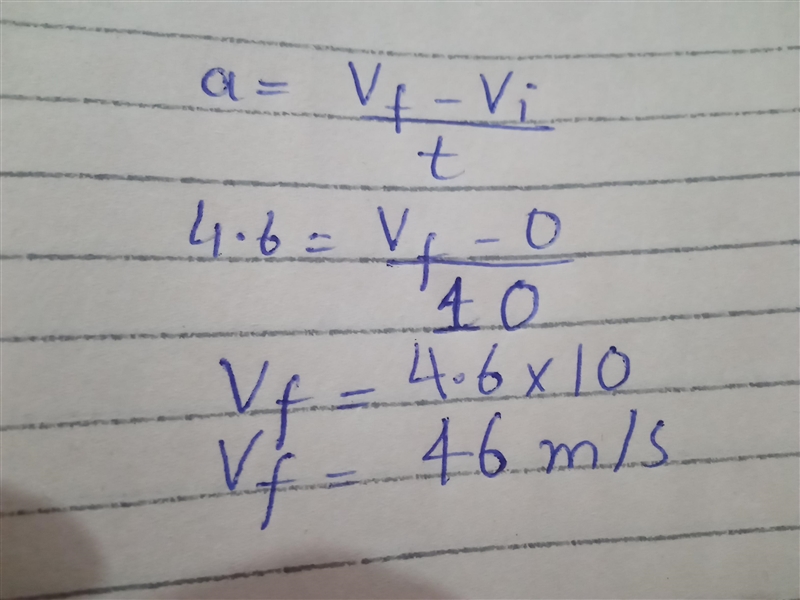 a = Vf - Vi / t
4.6 = Vf - 0 / 10
Vf = 4.6 x 10
Vf = 46 m/s